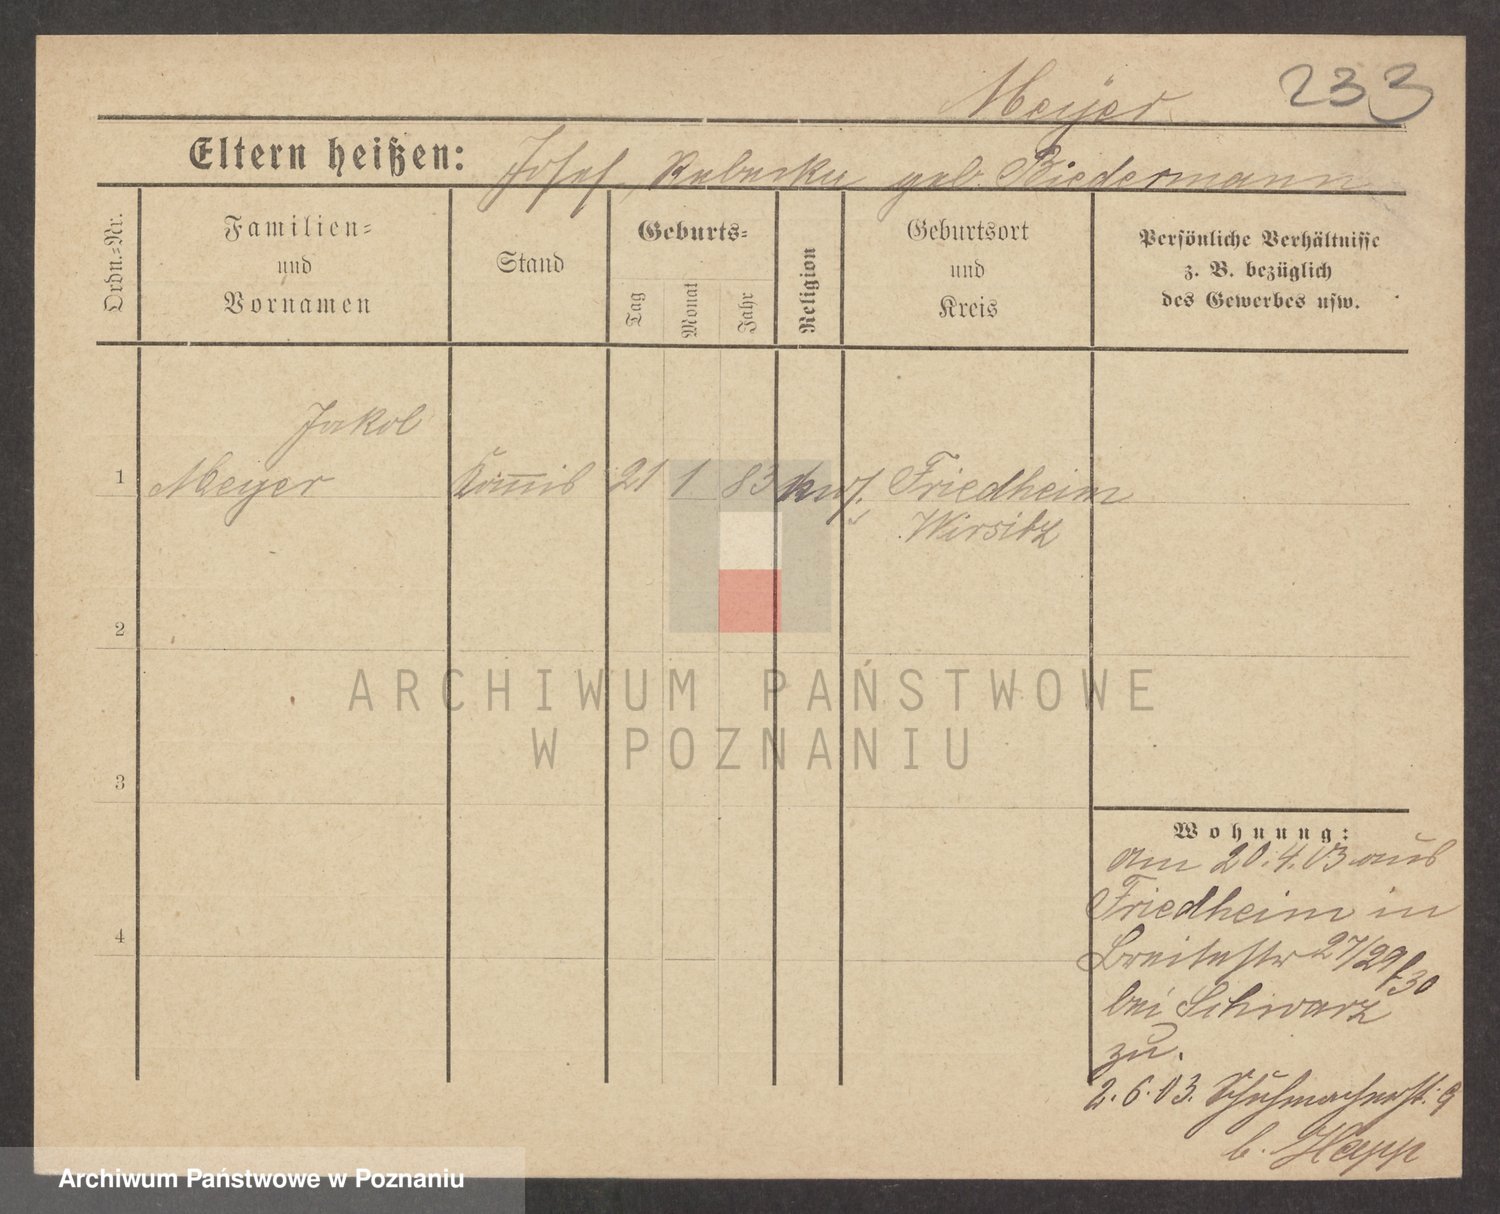 Meyer
233
Eltern heißen: Josef, Rebecka geb. Biedermann
Ordn.-Nr.
Familien-
und
Vornamen
Stand
Geburts-
Tag
Monat
Jahr
Religion
Geburtsort
und
Kreis
Persönliche Verhältnisse
z. B. bezüglich
des Gewerbes usw.
Jakob
1 Meyer Kom̅is 21 1 83 Friedheim
Wirsitz
2
3
4
ARCHIWUM PAŃSTWOWE
W POZNANIU
Wohnung:
am 20.4.03 aus
Friedheim in
Breitestr 27/29
bei Schwarz
zu.
2.6.03. Schuhmacherstr. 9
b. Happ
Archiwum Państwowe w Poznaniu